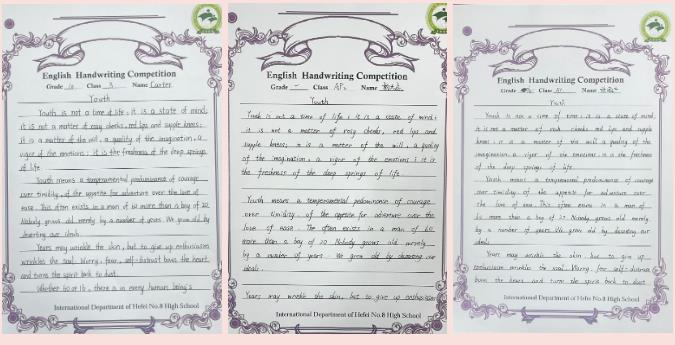 English Handwriting Competition
Grade 10 Class 3 Name Carter
Youth
Youth is not a time of life; it is a state of mind;
it is not a matter of rosy cheeks, red lips and supple knees;
it is a matter of the will, a quality of the imagination, a
vigor of the emotions; it is the freshness of the deep springs
of life
Youth means a temperamental predominance of courage
over timidity, of the appetite for adventure over the love of
ease. This often exists in a man of 60 more than a boy of 20.
Nobody grows old merely by a number of years. We grow old by
deserting our ideals.
Years may wrinkle the skin, but to give up enthusiasm
wrinkles the soul. Worry, fear, self-distrust bows the heart
and turns the spirit back to dust.
Whether 60 or 16, there is in every human being's
International Department of Hefei No.8 High School
English Handwriting Competition
Grade Class Name
Youth
Youth is not a time of life; it is a state of mind;
it is not a matter of rosy cheeks, red lips and
supple knees; it is a matter of the will, a quality
of the imagination, a vigor of the emotions; it is
the freshness of the deep springs of life
Youth means a temperamental predominance of courage
over timidity, of the appetite for adventure over the
love of ease. The often exists in a man of 60
more than a boy of 20 Nobody grows old merely
by a number of years. We grow old by deserting our
ideals.
Years may wrinkle the skin, but to give up enthusiasm
International Department of Hefei No.8 High School
English Handwriting Competition
Grade Class Name
Youth
Youth is not a time of time; it is a state of mind;
it is not a matter of cheeks, red lips and supple
knees; it is a matter of the will a quality of the
imagination, a vigor of the emotions is the freshness
of the deep springs of life
Youth means a temperamental predominance of courage
over timidity of the appetite for adventure over
the love of ease. This often exists in a man of
60 more than a boy of 20 Nobody grows old merely
by a number of years. We grow old by deserting our
ideals
Years may wrinkle the skin but to give up
enthusiasm wrinkle the soul. Worry, fear self-distrust
the heart and turn the spirit back to dust
International Department of Hefei No.8 High School